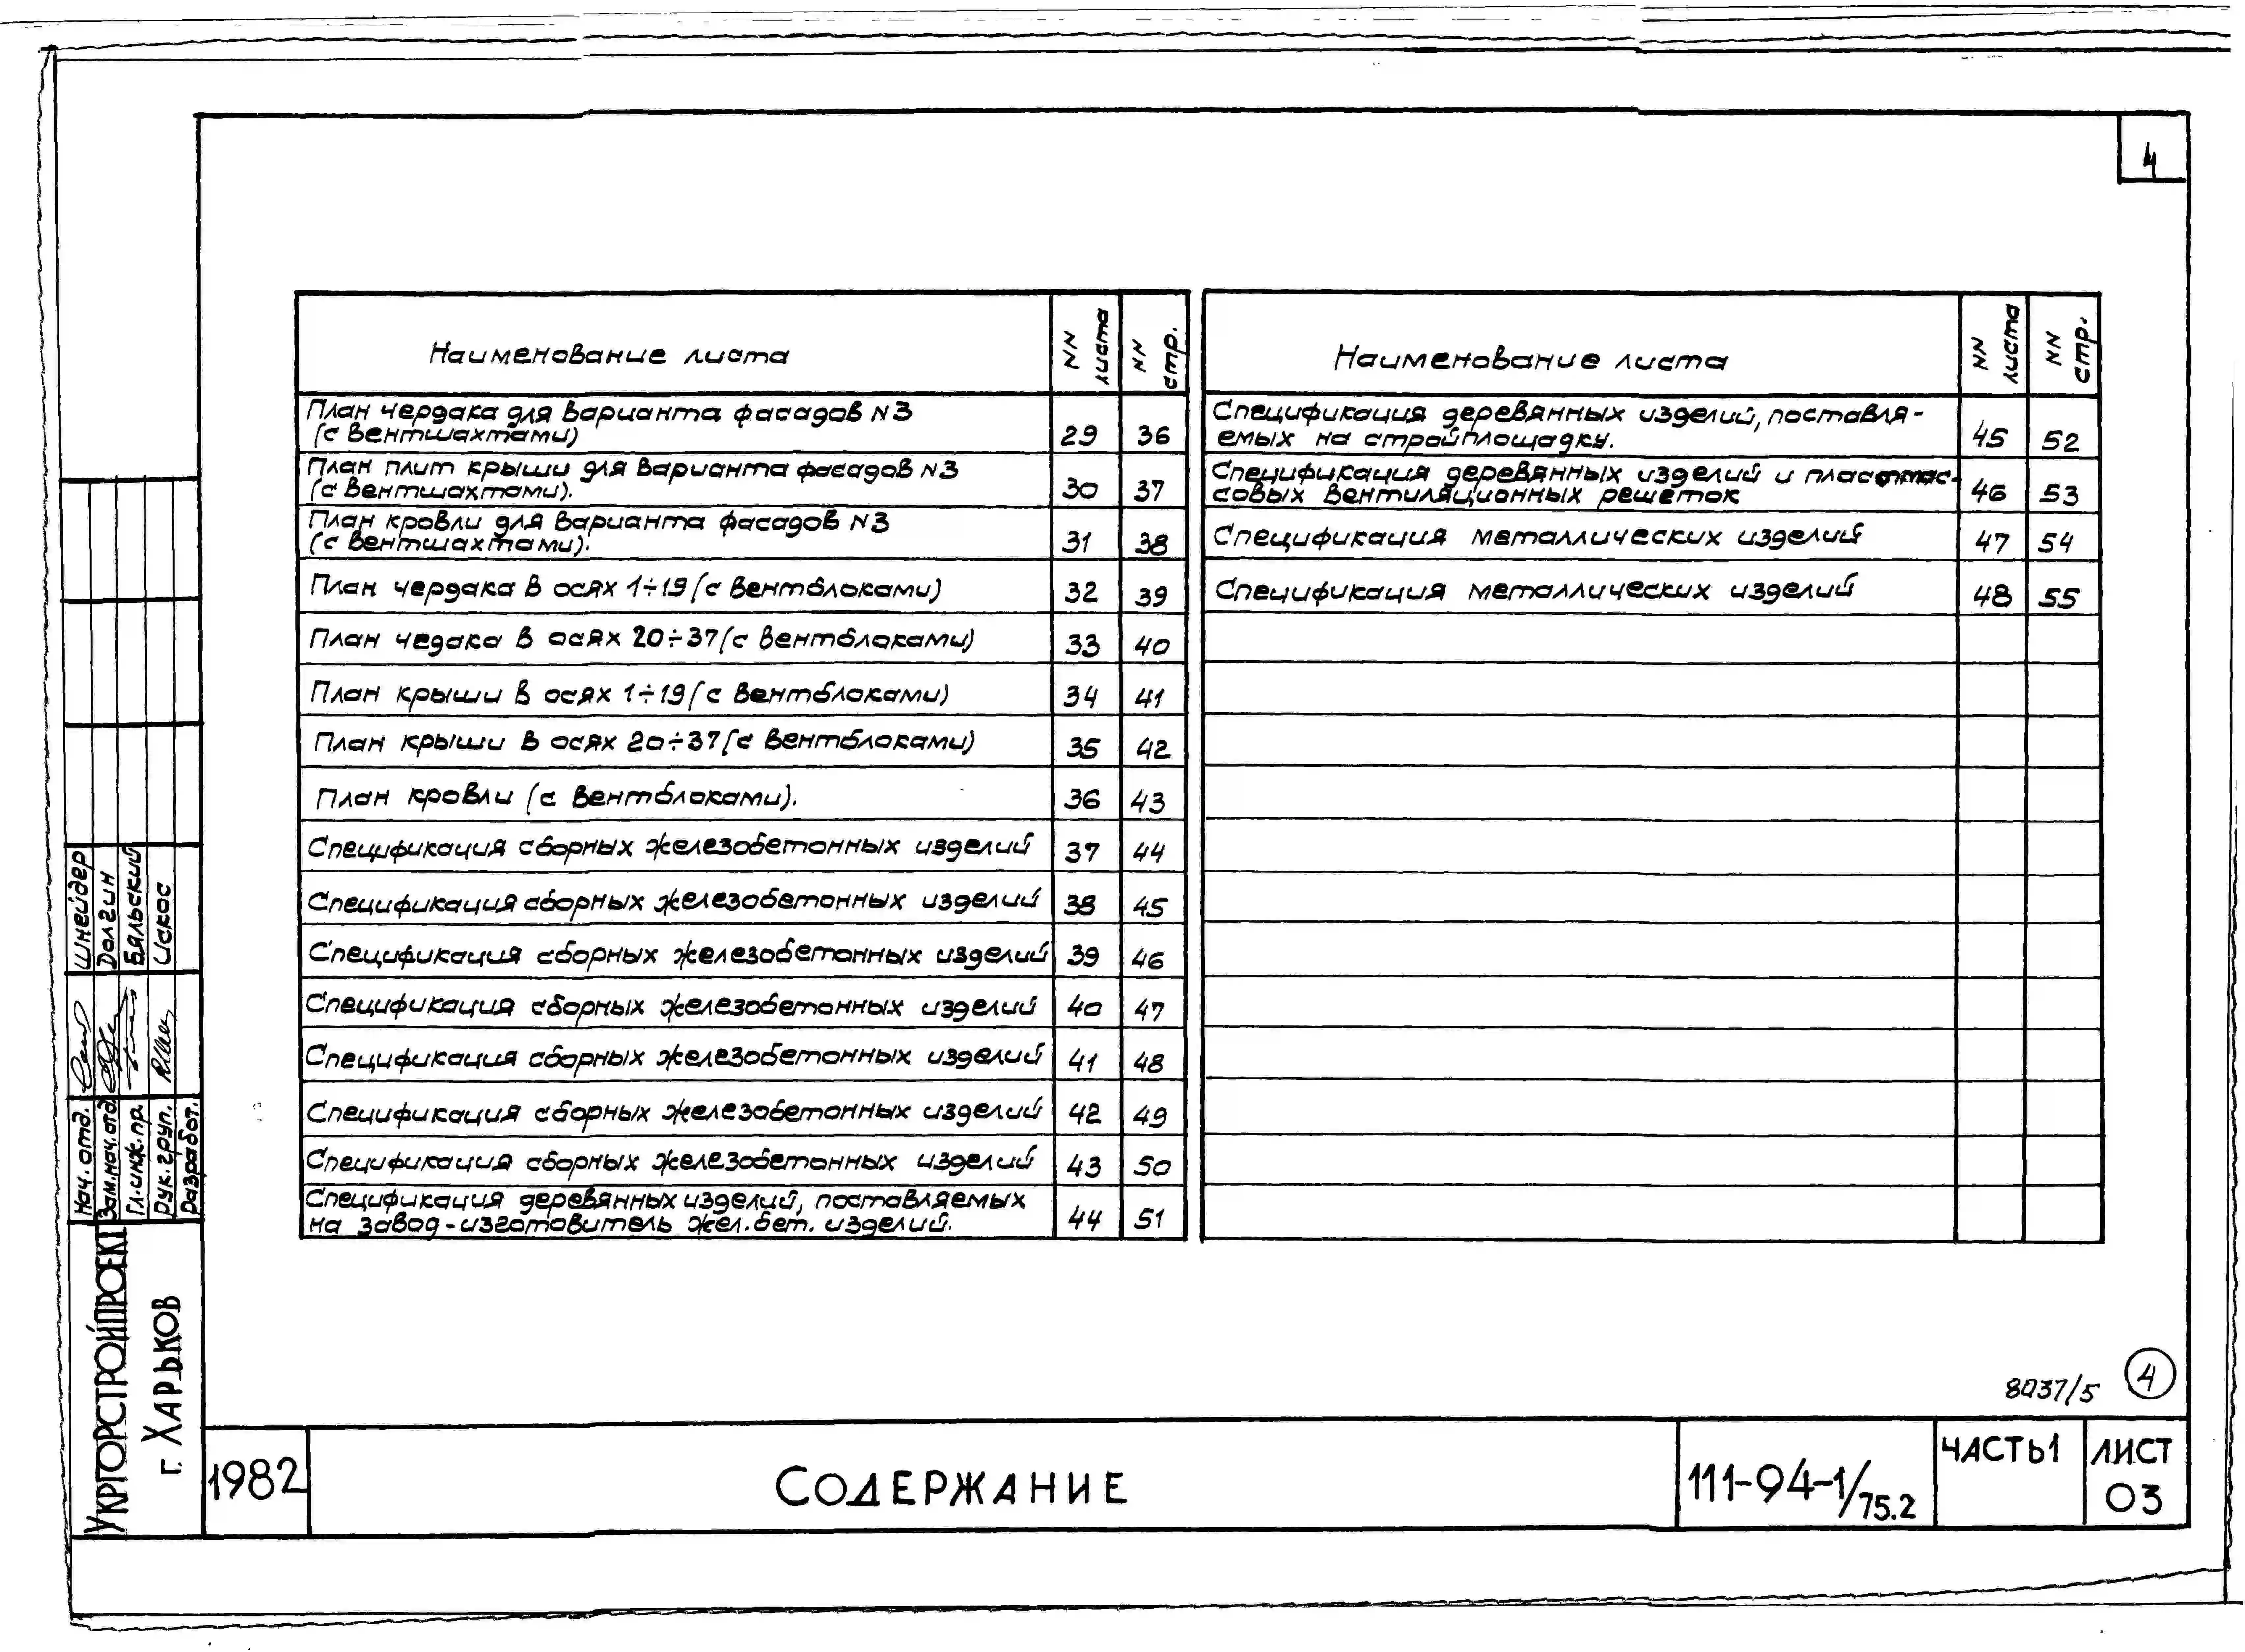 4
Наименование листа
NN листа
NN стр.
План чердака для варианта фасадов N3
(с вентшахтами)
29
36
План плит крыши для варианта фасадов N3
(с вентшахтами).
30
37
План кровли для варианта фасадов N3
(с вентшахтами).
31
38
План чердака в осях 1÷19 (с вентблоками)
32
39
План чедака в осях 20÷37 (с вентблоками)
33
40
План крыши в осях 1÷19 (с вентблоками)
34
41
План крыши в осях 20÷37 (с вентблоками)
35
42
План кровли (с вентблоками).
36
43
Спецификация сборных железобетонных изделий
37
44
Спецификация сборных железобетонных изделий
38
45
Спецификация сборных железобетонных изделий
39
46
Спецификация сборных железобетонных изделий
40
47
Спецификация сборных железобетонных изделий
41
48
Спецификация сборных железобетонных изделий
42
49
Спецификация сборных железобетонных изделий
43
50
Спецификация деревянных изделий, поставляемых
на завод-изготовитель жел.бет. изделий.
44
51
Наименование листа
NN листа
NN стр.
Спецификация деревянных изделий, поставля-
емых на стройплощадку.
45
52
Спецификация деревянных изделий и пластмас-
совых вентиляционных решеток
46
53
Спецификация металлических изделий
47
54
Спецификация металлических изделий
48
55
Нач. отд.
Шнейдер
Зам.нач.отд
Долгин
Гл.инж.пр.
Бяльский
Рук.груп.
Искос
Разработ.
УКРГОРСТРОЙПРОЕКТ
г. ХАРЬКОВ
8037/5
4
1982
СОДЕРЖАНИЕ
111-94-1/75.2
ЧАСТЬ1
ЛИСТ
03